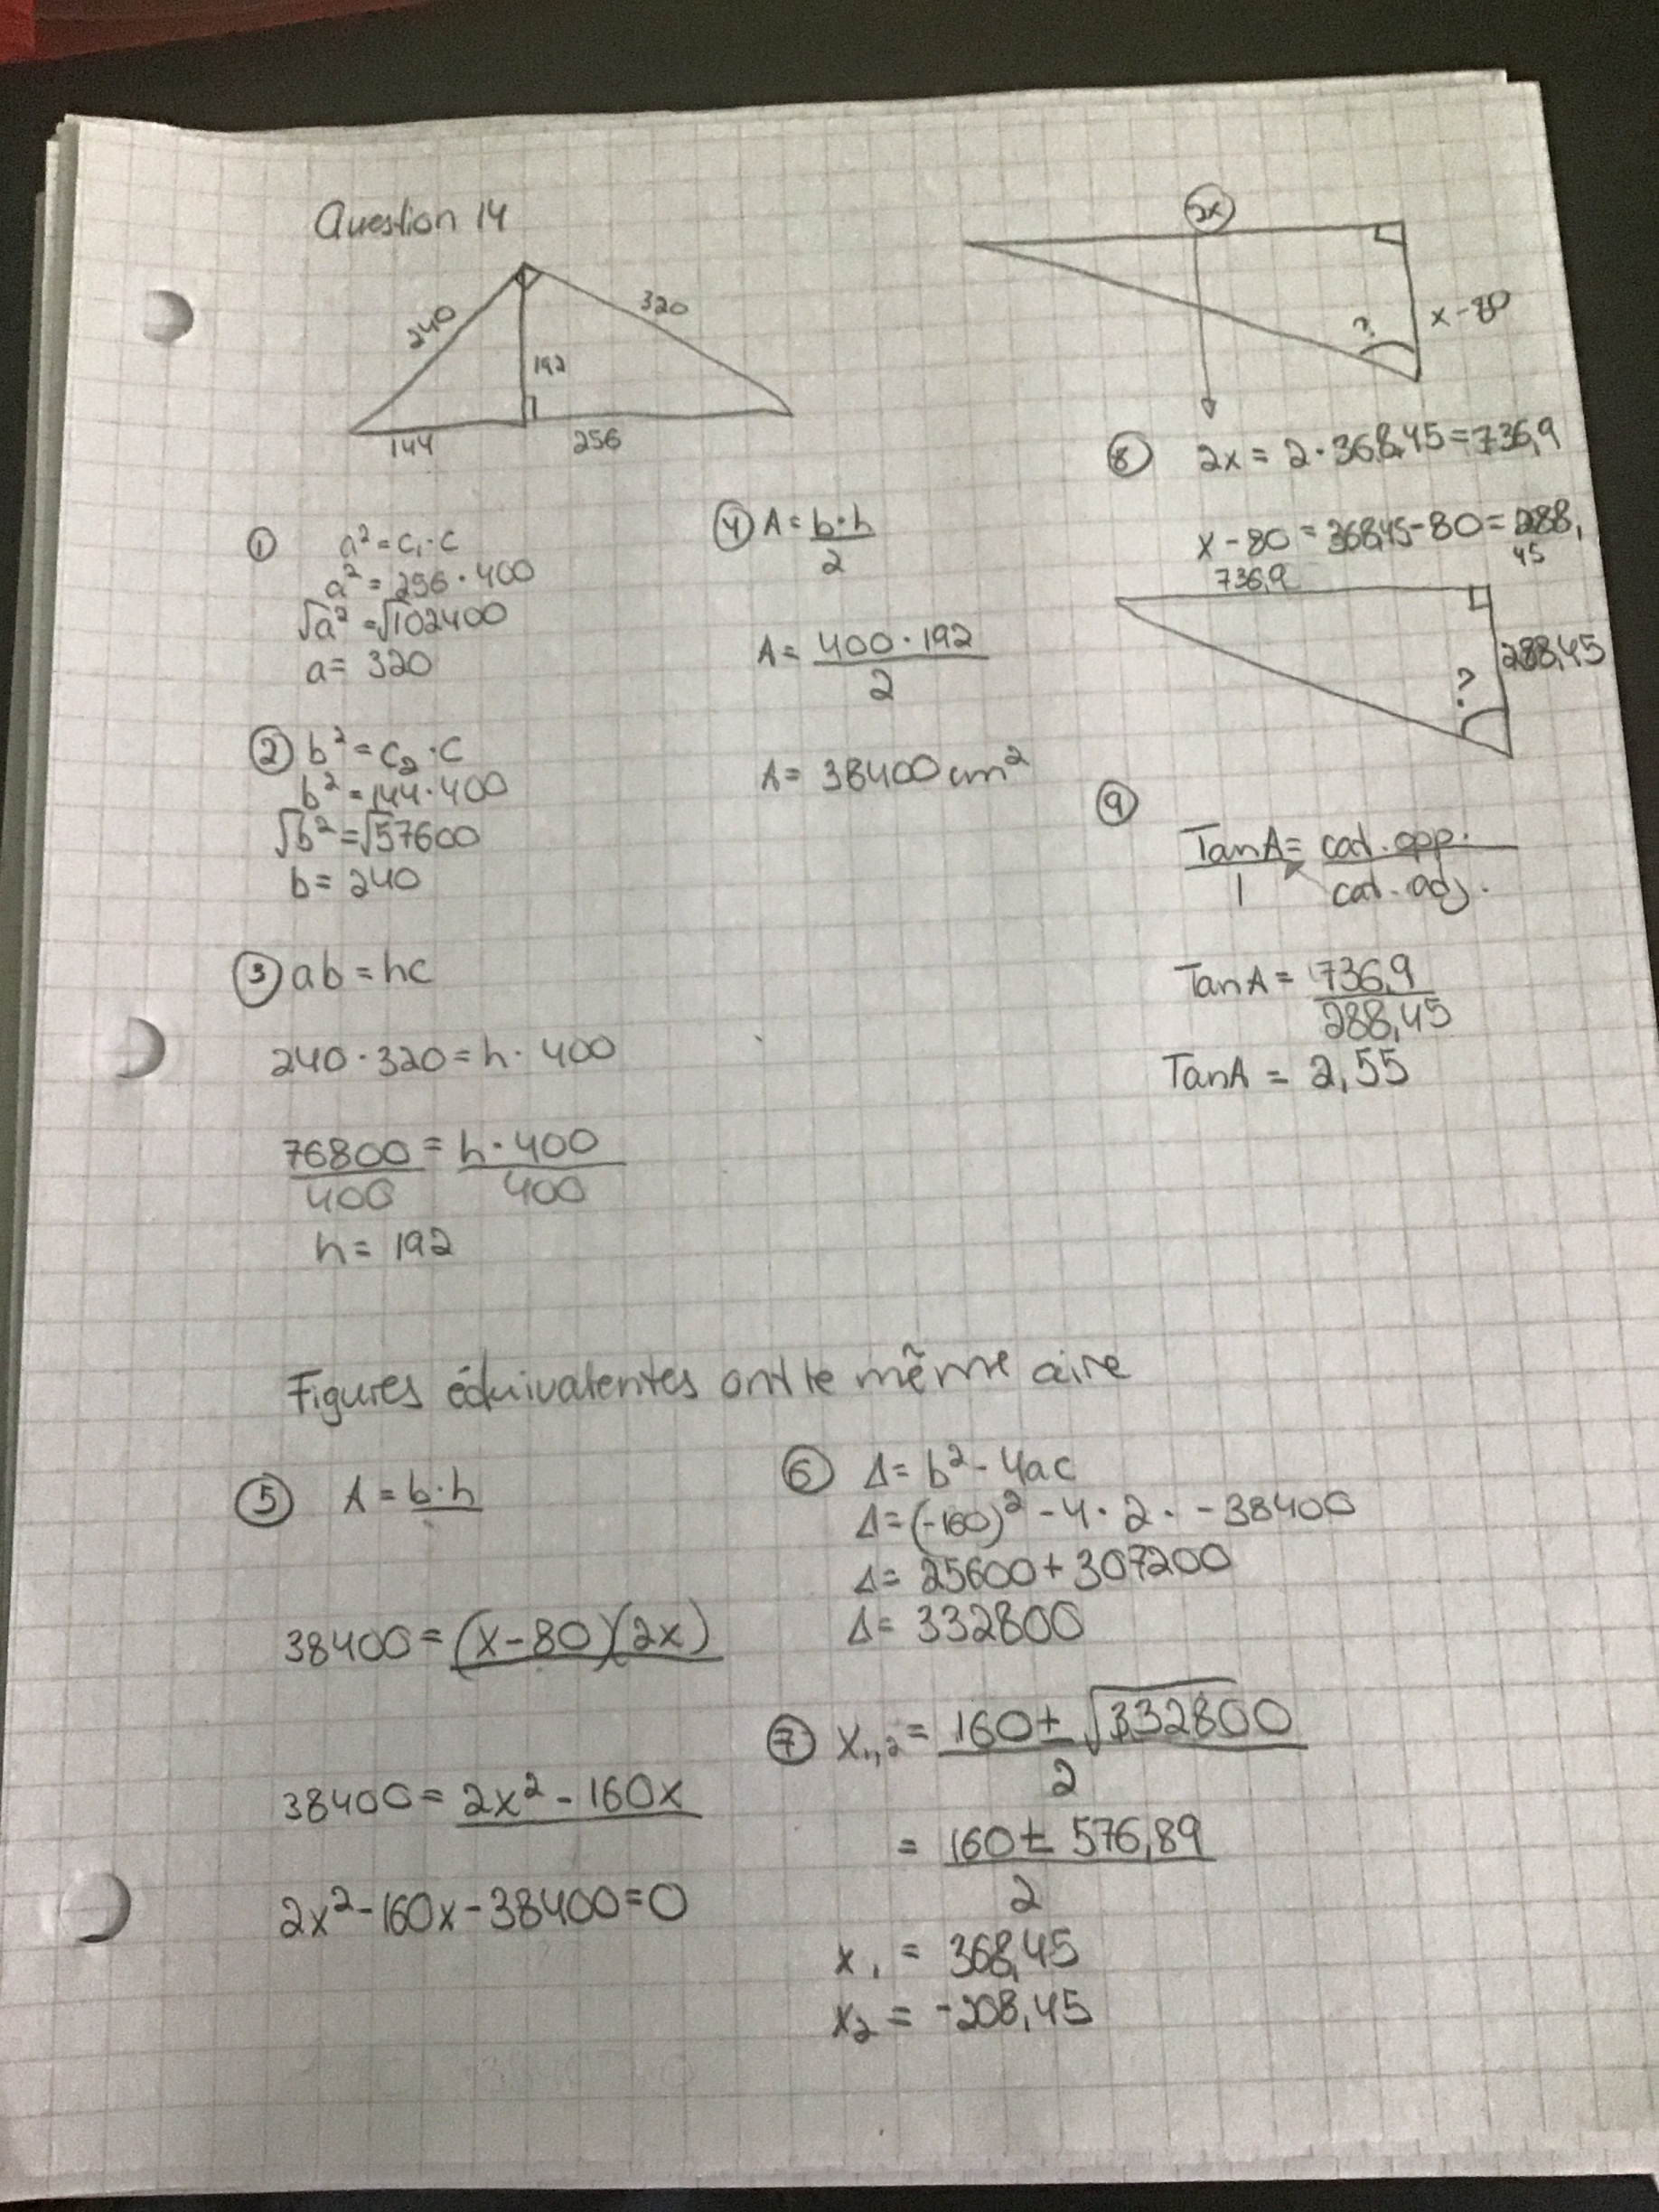 Question 14
240
320
192
144
256
① a² = c₁·c
a² = 256·400
√a² = √102400
a = 320
② b² = c₂·c
b² = 144·400
√b² = √57600
b = 240
③ ab = hc
240·320 = h·400
76800/400 = h·400/400
h = 192
④ A = b·h/2
A = 400·192/2
A = 38400 cm²
2x
x-80
?
⑧ 2x = 2·368,45 = 736,9
x-80 = 368,45-80 = 288,
45
736,9
288,45
?
⑨
TanA/1 = cat.opp./cat.adj.
TanA = 736,9/288,45
TanA = 2,55
Figures équivalentes ont le même aire
⑤ A = b·h
38400 = (x-80)(2x)
38400 = 2x²-160x
2x²-160x-38400=0
⑥ Δ = b²-4ac
Δ = (-160)²-4·2·-38400
Δ = 25600+307200
Δ = 332800
⑦ x₁,₂ = 160±√332800/2
= 160±576,89/2
x₁ = 368,45
x₂ = -208,45